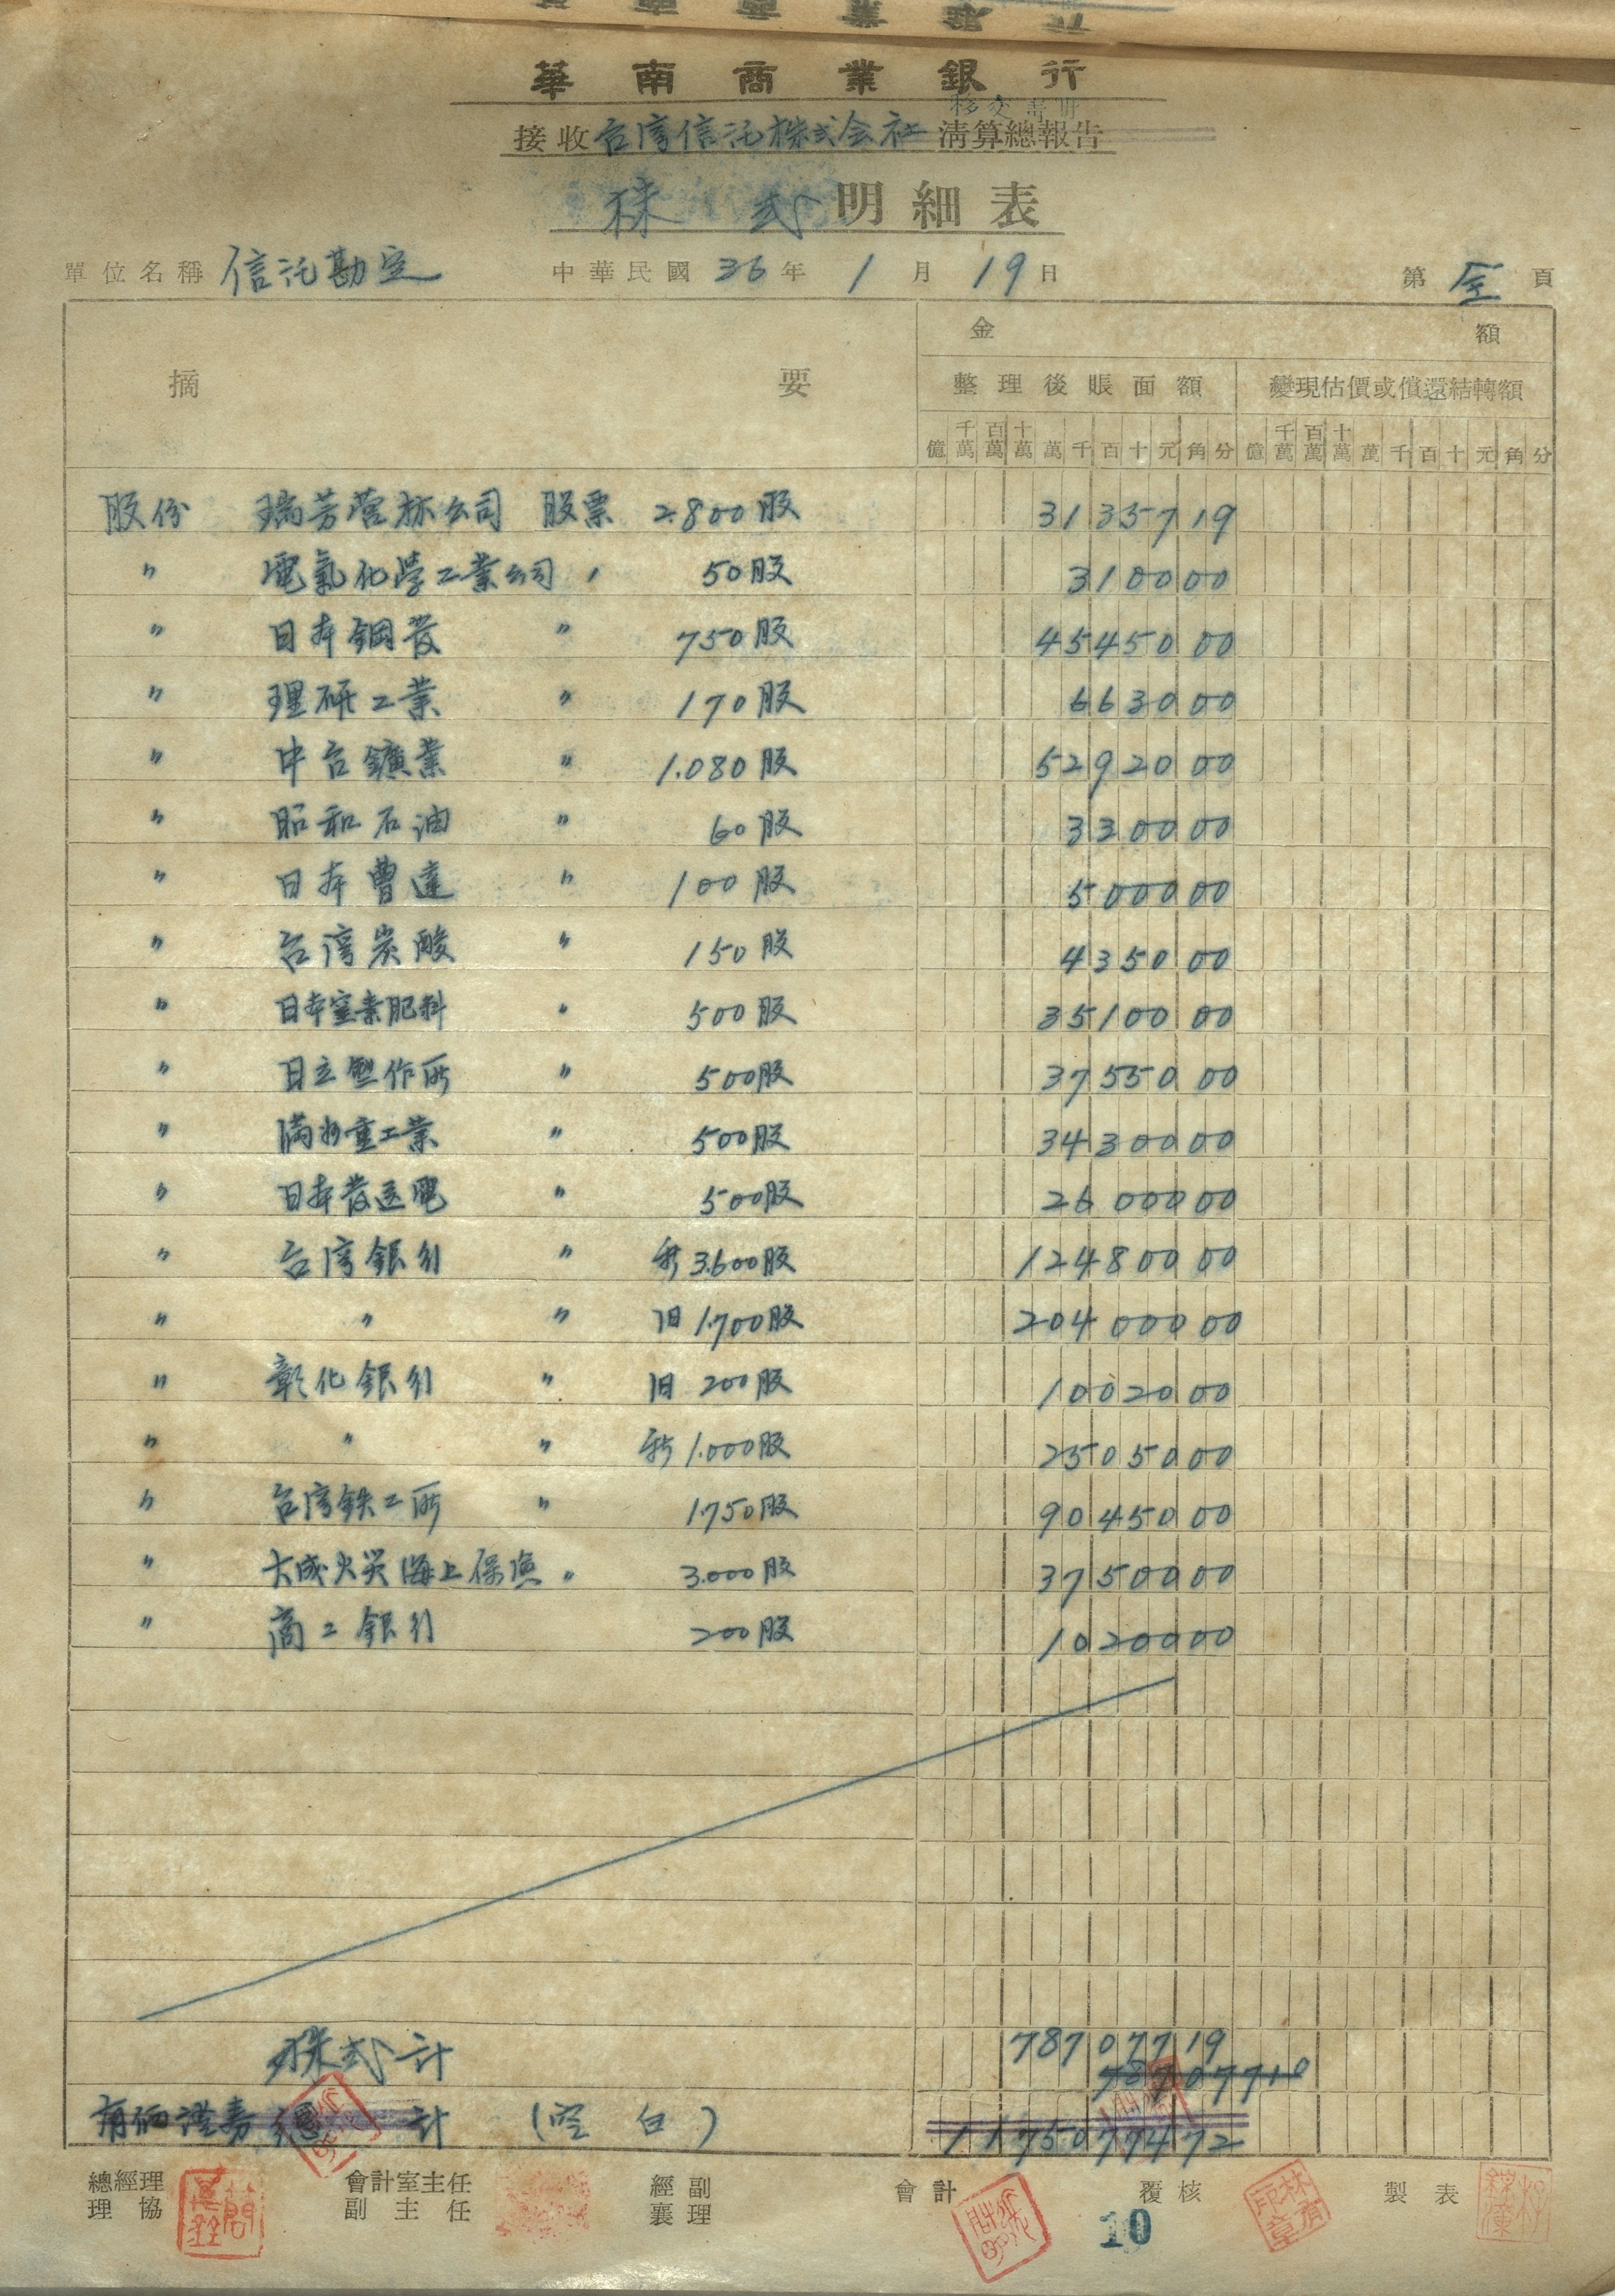 華南商業銀行
移交清冊
接收台湾信託株式会社清算總報告
株式明細表
單位名稱 信託勘定 中華民國36年1月19日 第全頁
摘要 金額
整理後賬面額 變現估價或償還結轉額
億 千萬 百萬 十萬 萬 千 百 十 元 角 分 億 千萬 百萬 十萬 萬 千 百 十 元 角 分
股份 瑞芳営林公司 股票 2.800股 31335719
〃 電氣化學工業公司 〃 50股 310000
〃 日本鋼管 〃 750股 4545000
〃 理研工業 〃 170股 663000
〃 中台鑛業 〃 1.080股 5292000
〃 昭和石油 〃 60股 330000
〃 日本曹達 〃 100股 500000
〃 台湾炭酸 〃 150股 435000
〃 日本窒素肥料 〃 500股 3510000
〃 日立製作所 〃 500股 3755000
〃 満州重工業 〃 500股 3430000
〃 日本發送電 〃 500股 2600000
〃 台湾銀行 〃 新 3.600股 12480000
〃 〃 〃 旧 1.700股 20400000
〃 彰化銀行 〃 旧 200股 1002000
〃 〃 〃 新 1.000股 2505000
〃 台湾鉄工所 〃 1.750股 9045000
〃 大成火災海上保険 〃 3.000股 3750000
〃 商工銀行 200股 1020000
株式計 78707719
78707710
有価證券總計 (空白) 1175077472
總經理 會計室主任 經副 會計 覆核 製表
理協 副主任 襄理
10